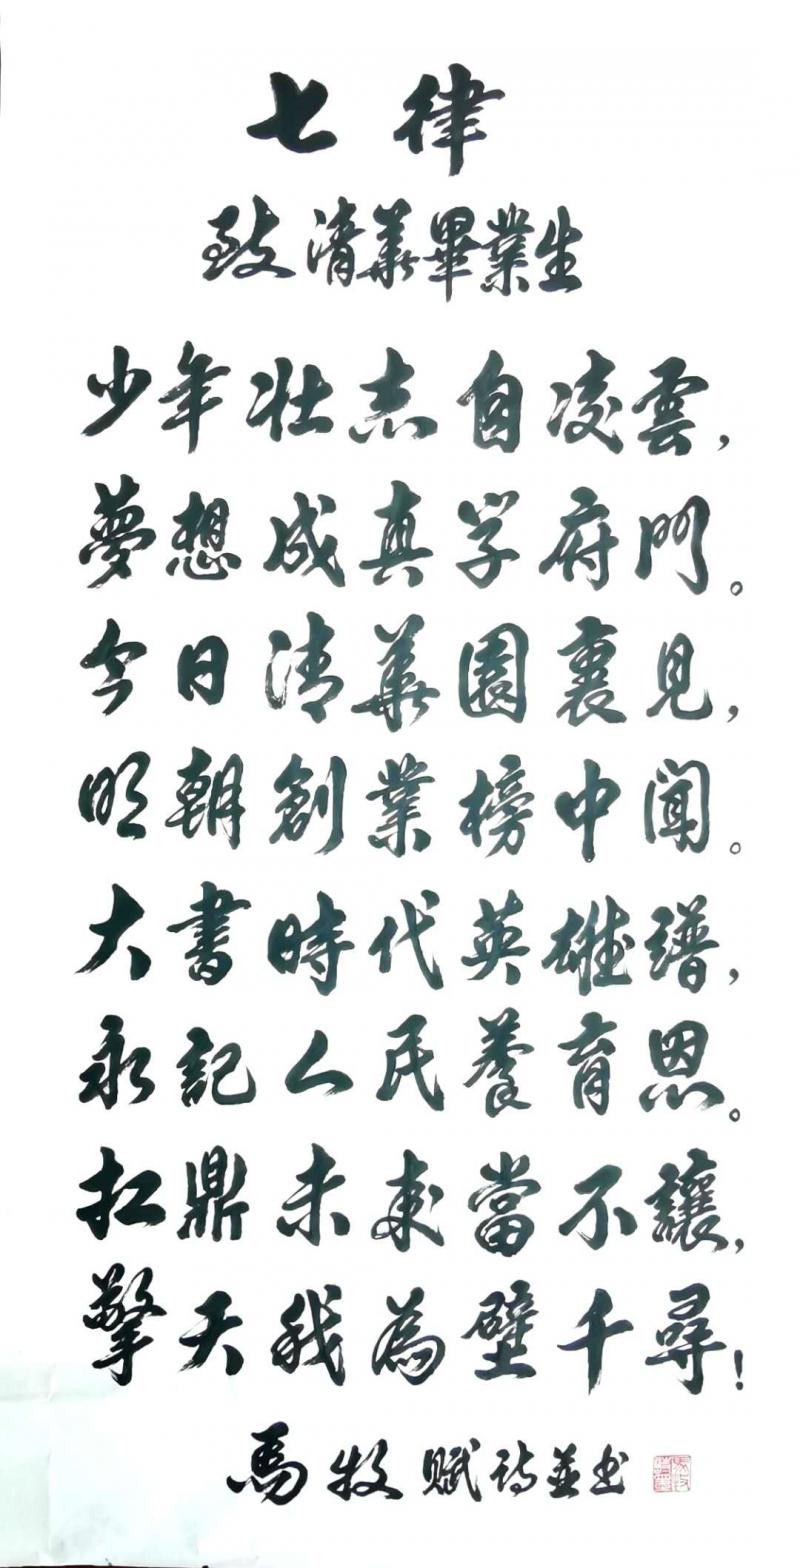 七律
致清華畢業生
少年壯志自凌雲，
夢想成真学府門。
今日清華園裏見，
明朝創業榜中聞。
大書時代英雄譜，
永記人民養育恩。
扛鼎未來當不讓，
擎天我為壁千尋！
馬牧賦詩並书